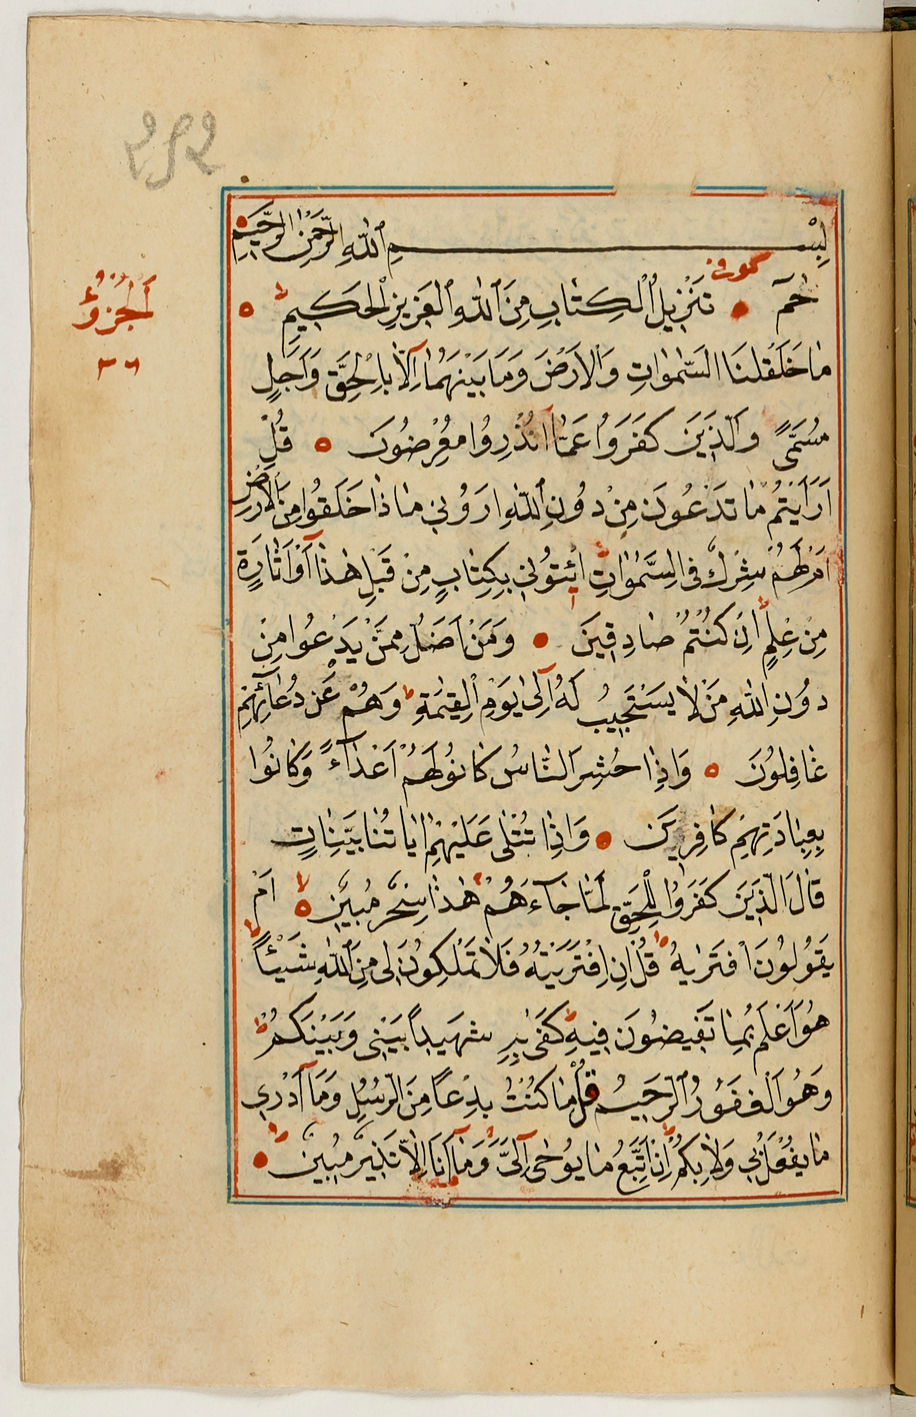 ٢٩٢
بِسْمِ ٱللّٰهِ الرَّحْمٰنِ الرَّحِيمِ
كوفى
حٰمٓ تَنْزِيلُ الْكِتَابِ مِنَ ٱللّٰهِ الْعَزِيزِ الْحَكِيمِ ط
الجزؤ
٢٦
مَا خَلَقْنَا السَّمٰوَاتِ وَالْاَرْضَ وَمَا بَيْنَهُمَا اِلَّا بِالْحَقِّ وَاَجَلٍ
مُسَمًّى وَالَّذِينَ كَفَرُوا عَمَّا اُنْذِرُوا مُعْرِضُونَ قُلْ
اَرَاَيْتُمْ مَا تَدْعُونَ مِنْ دُونِ ٱللّٰهِ اَرُونِي مَاذَا خَلَقُوا مِنَ الْاَرْضِ
اَمْ لَهُمْ شِرْكٌ فِى السَّمٰوَاتِ ط اِئْتُونِي بِكِتَابٍ مِنْ قَبْلِ هٰذَا اَوْ اَثَارَةٍ
مِنْ عِلْمٍ اِنْ كُنْتُمْ صَادِقِينَ وَمَنْ اَضَلُّ مِمَّنْ يَدْعُوا مِنْ
دُونِ ٱللّٰهِ مَنْ لَا يَسْتَجِيبُ لَهُ اِلٰى يَوْمِ الْقِيٰمَةِ وَهُمْ عَنْ دُعَآئِهِمْ
غَافِلُونَ وَاِذَا حُشِرَ النَّاسُ كَانُوا لَهُمْ اَعْدَآءً وَكَانُوا
بِعِبَادَتِهِمْ كَافِرِينَ وَاِذَا تُتْلٰى عَلَيْهِمْ اٰيَاتُنَا بَيِّنَاتٍ
قَالَ الَّذِينَ كَفَرُوا لِلْحَقِّ لَمَّا جَآءَهُمْ هٰذَا سِحْرٌ مُبِينٌ ط اَمْ
يَقُولُونَ افْتَرٰيهُ ط قُلْ اِنِ افْتَرَيْتُهُ فَلَا تَمْلِكُونَ لِى مِنَ ٱللّٰهِ شَيْئًا ط
هُوَ اَعْلَمُ بِمَا تُفِيضُونَ فِيهِ ط كَفٰى بِهِ شَهِيدًا بَيْنِى وَبَيْنَكُمْ ط
وَهُوَ الْغَفُورُ الرَّحِيمُ قُلْ مَا كُنْتُ بِدْعًا مِنَ الرُّسُلِ وَمَآ اَدْرِى
مَا يُفْعَلُ بِى وَلَا بِكُمْ ط اِنْ اَتَّبِعُ مَا يُوحٰى اِلَىَّ وَمَآ اَنَا اِلَّا نَذِيرٌ مُبِينٌ ط